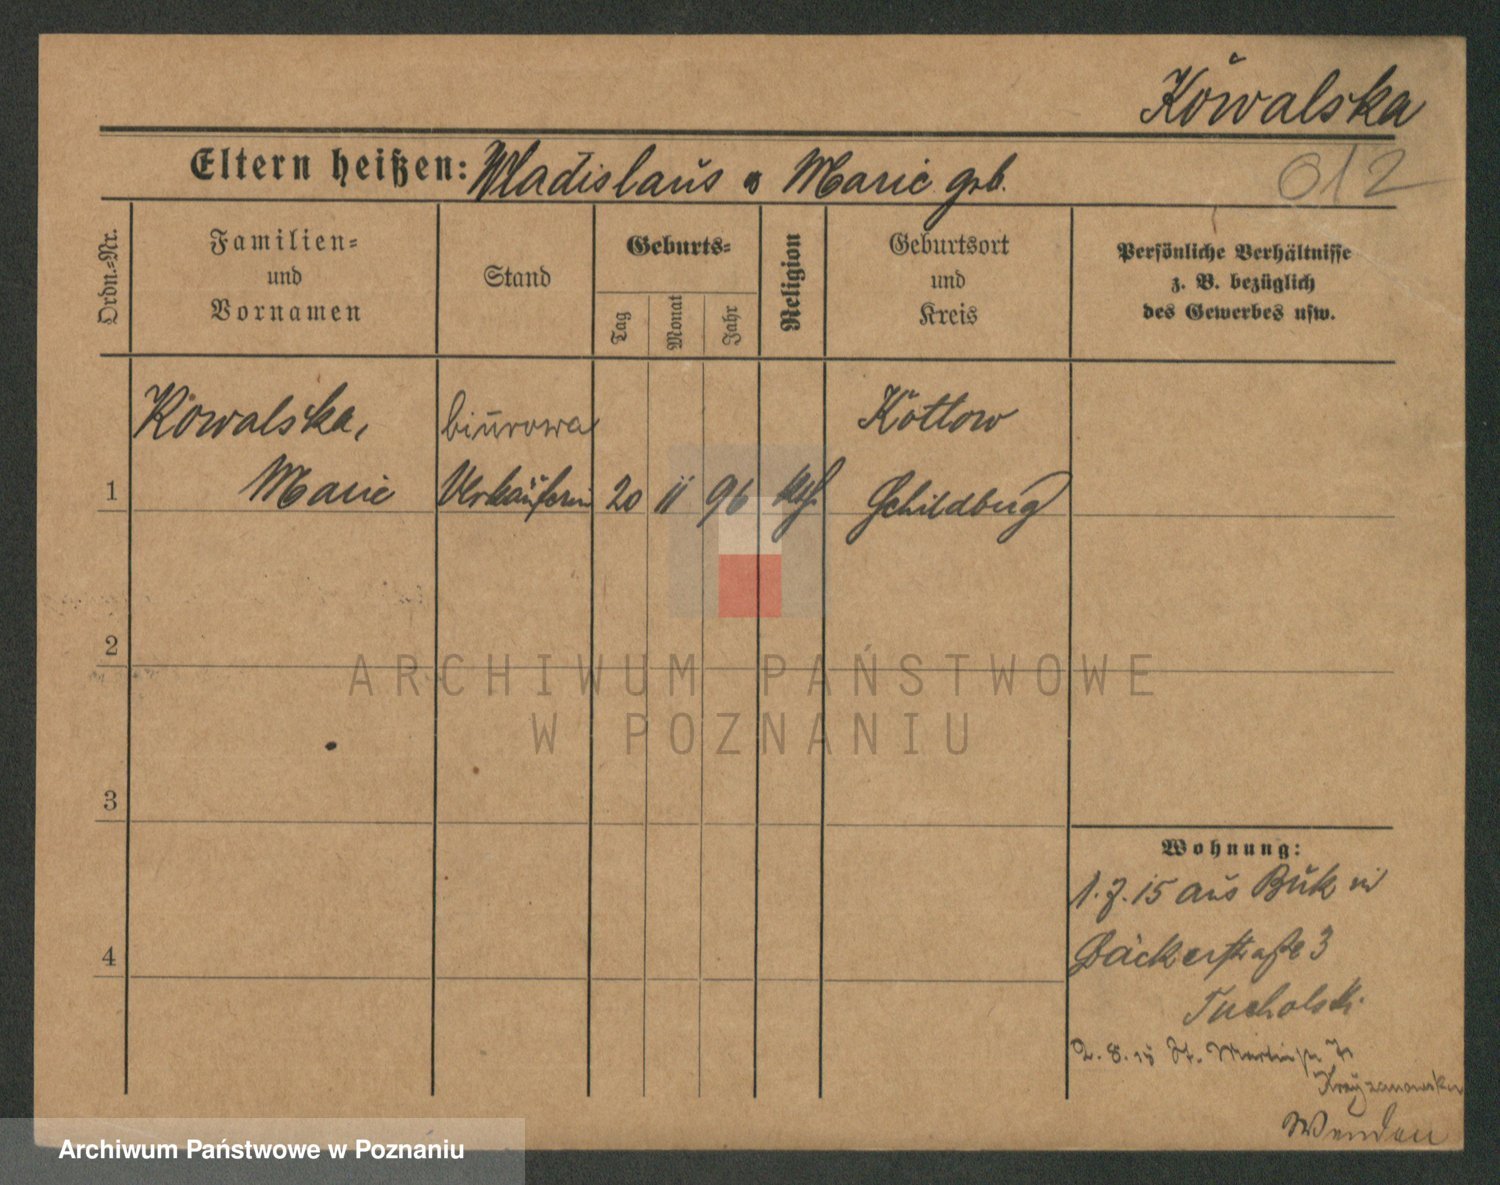 Kowalska
Eltern heißen: Wladislaus u Marie geb.
012
Ordn.=Nr.
Familien=
und
Vornamen
Stand
Geburts=
Tag
Monat
Jahr
Religion
Geburtsort
und
Kreis
Persönliche Verhältnisse
z. B. bezüglich
des Gewerbes usw.
Kowalska, biurowa Kotlow
1 Marie Verkäuferin 20 11 96 kth. Schildberg
2
ARCHIWUM PAŃSTWOWE
W POZNANIU
3
Wohnung:
1.7.15 aus Buk in
4 Bäckerstraße 3
Tucholski
2. 8. 15 St. Martinstr
Krzyzanowska
Wenden
Archiwum Państwowe w Poznaniu